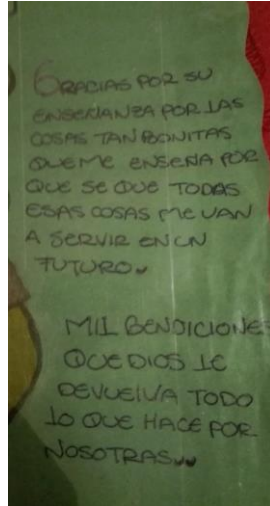 GRACIAS POR SU
ENSEÑANZA POR LAS
COSAS TAN BONITAS
QUE ME ENSEÑA POR
QUE SE QUE TODAS
ESAS COSAS ME VAN
A SERVIR EN UN
FUTURO
MIL BENDICIONE
QUE DIOS LE
DEVUELVA TODO
LO QUE HACE POR
NOSOTRAS